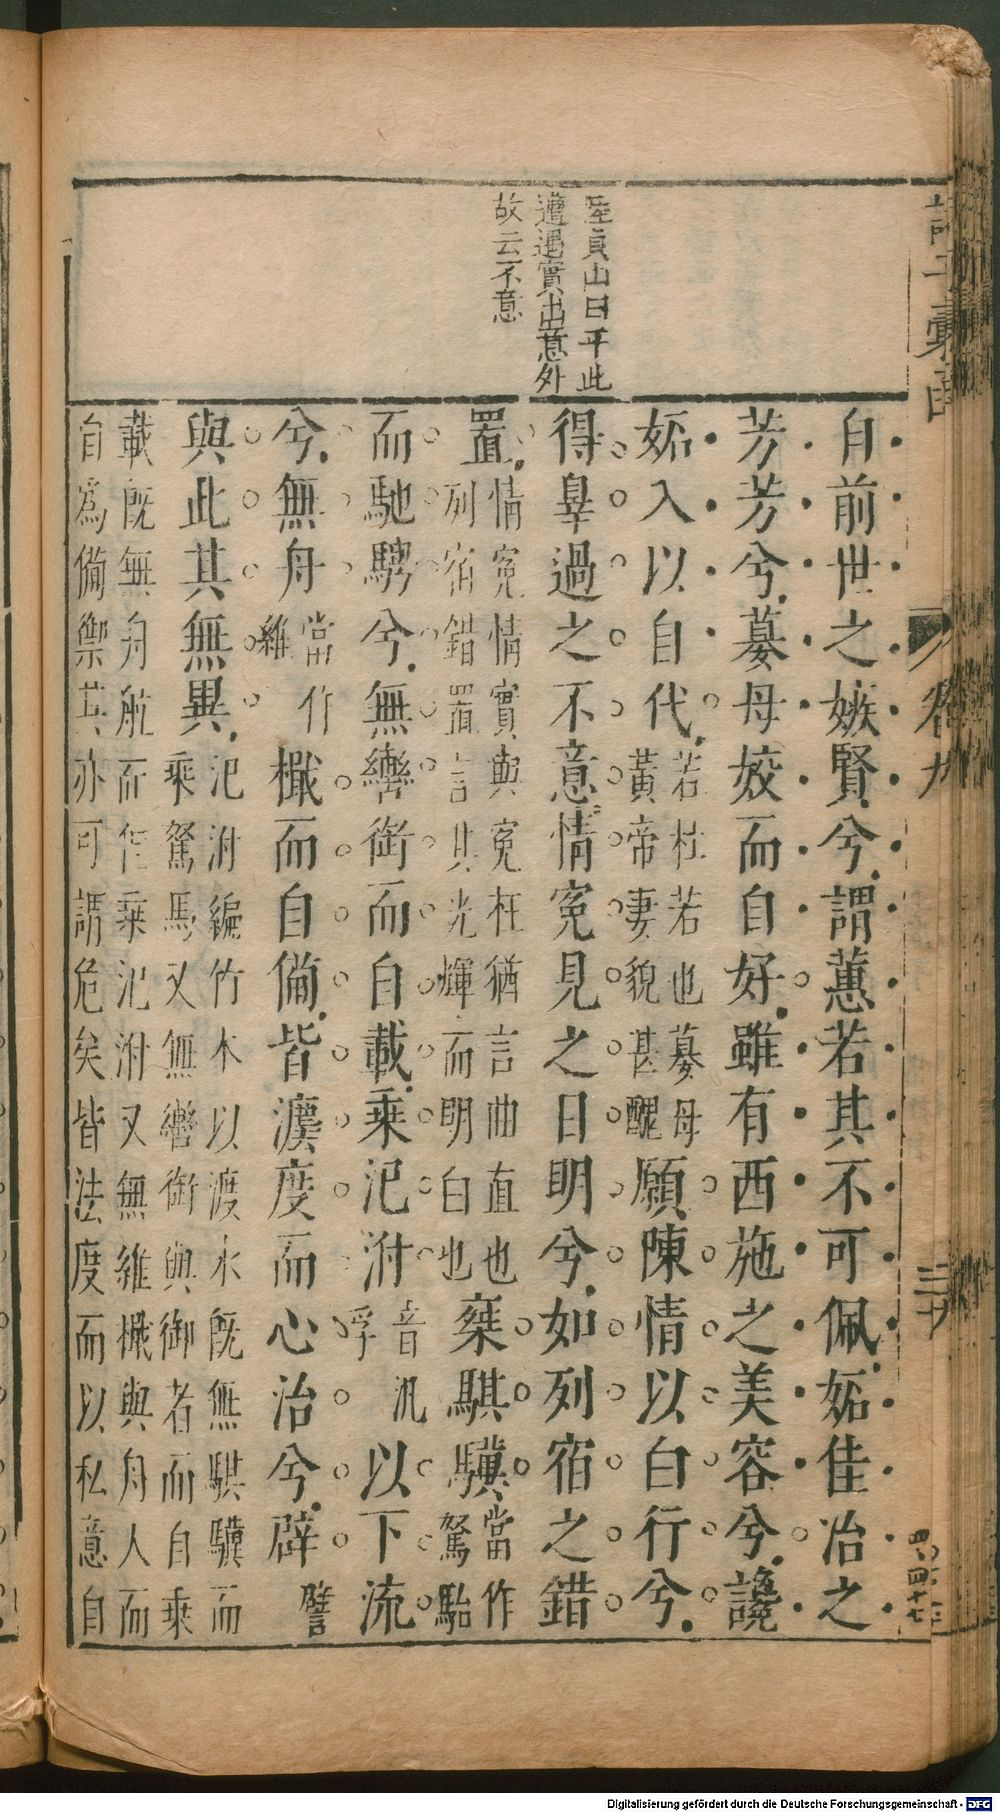 陸貞山曰平此
遭遇實出意外
故云不意
自前世之嫉賢兮謂蕙若其不可佩妬佳冶之
芳芳兮嫫母姣而自好雖有西施之美容兮讒
妬入以自代若杜若也嫫母黃帝妻貌甚醜願陳情以白行兮
得辠過之不意情冤見之日明兮如列宿之錯
置情冤情實與冤枉猶言曲直也列宿錯置言其光輝而明白也椉騏驥當作駑駘
而馳騁兮無轡銜而自載乘汜泭音汎浮以下流
兮無舟當作維檝而自備皆瀆度而心治兮辟譬
與此其無異汜泭編竹木以渡水旣無騏驥而乘駑馬又無轡銜與御者而自乘
載旣無舟航而乘汜泭又無維檝與舟人而
自爲備禦其亦可謂危矣皆法度而以私意自
卷九
三十
Digitalisierung gefördert durch die Deutsche Forschungsgemeinschaft - DFG